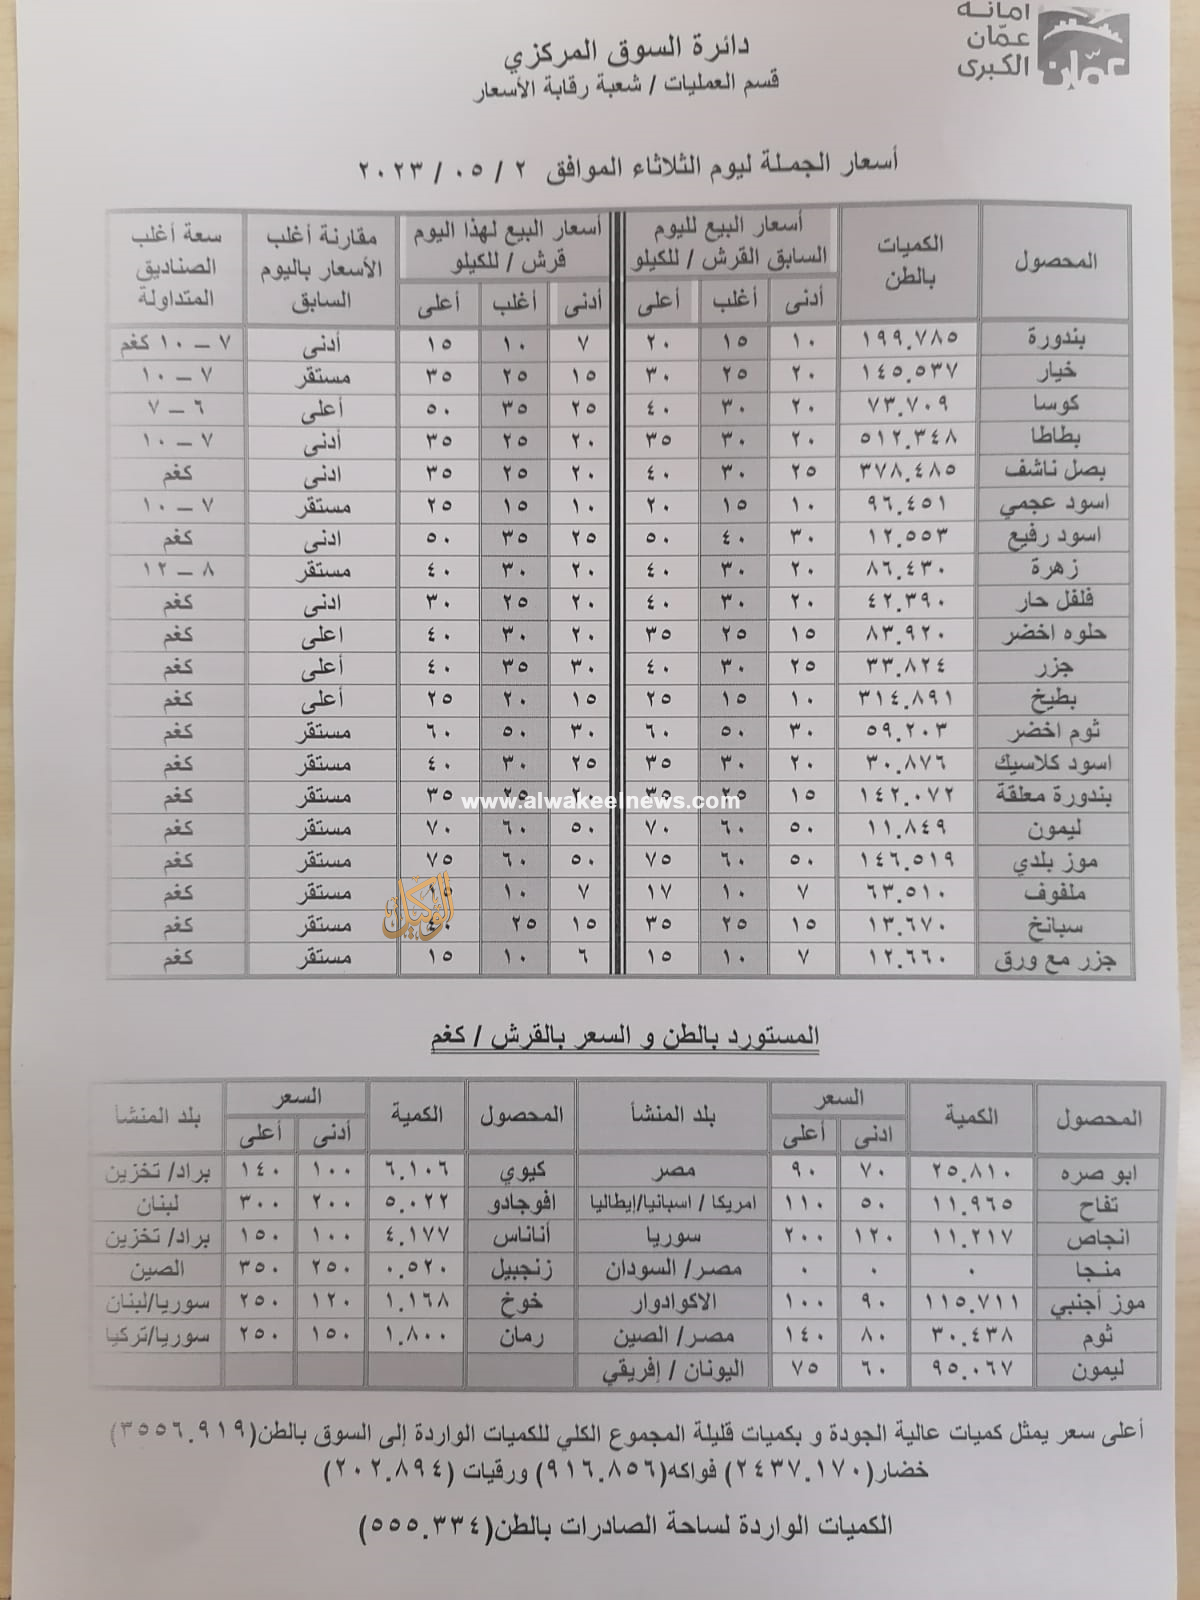 امانة
عمّان
الكبرى
عمّان
دائرة السوق المركزي
قسم العمليات / شعبة رقابة الأسعار
أسعار الجملة ليوم الثلاثاء الموافق ٢ / ٠٥ / ٢٠٢٣
المحصول الكميات بالطن أسعار البيع لليوم السابق القرش / للكيلو أسعار البيع لهذا اليوم قرش / للكيلو مقارنة أغلب الأسعار باليوم السابق سعة أغلب الصناديق المتداولة
أدنى أغلب أعلى أدنى أغلب أعلى
بندورة ١٩٩.٧٨٥ ١٠ ١٥ ٢٠ ٧ ١٠ ١٥ أدنى ٧ – ١٠ كغم
خيار ١٤٥.٥٣٧ ٢٠ ٢٥ ٣٠ ١٥ ٢٥ ٣٥ مستقر ٧ – ١٠
كوسا ٧٣.٧٠٩ ٢٠ ٣٠ ٤٠ ٢٥ ٣٥ ٥٠ أعلى ٦ – ٧
بطاطا ٥١٢.٣٤٨ ٢٠ ٣٠ ٣٥ ٢٠ ٢٥ ٣٥ أدنى ٧ – ١٠
بصل ناشف ٣٧٨.٤٨٥ ٢٥ ٣٠ ٤٠ ٢٠ ٢٥ ٣٥ ادنى كغم
اسود عجمي ٩٦.٤٥١ ١٠ ١٥ ٢٠ ١٠ ١٥ ٢٥ مستقر ٧ – ١٠
اسود رفيع ١٢.٥٥٣ ٣٠ ٤٠ ٥٠ ٢٥ ٣٥ ٥٠ ادنى كغم
زهرة ٨٦.٤٣٠ ٢٠ ٣٠ ٤٠ ٢٠ ٣٠ ٤٠ مستقر ٨ – ١٢
فلفل حار ٤٢.٣٩٠ ٢٠ ٣٠ ٤٠ ٢٠ ٢٥ ٣٠ ادنى كغم
حلوه اخضر ٨٣.٩٢٠ ١٥ ٢٥ ٣٥ ٢٠ ٣٠ ٤٠ اعلى كغم
جزر ٣٣.٨٢٤ ٢٥ ٣٠ ٤٠ ٣٠ ٣٥ ٤٠ أعلى كغم
بطيخ ٣١٤.٨٩١ ١٠ ١٥ ٢٥ ١٥ ٢٠ ٢٥ أعلى كغم
ثوم اخضر ٥٩.٢٠٣ ٣٠ ٥٠ ٦٠ ٣٠ ٥٠ ٦٠ مستقر كغم
اسود كلاسيك ٣٠.٨٧٦ ٢٠ ٣٠ ٣٥ ٢٥ ٣٠ ٤٠ مستقر كغم
بندورة معلقة ١٤٢.٠٧٢ ١٥ ٢٥ ٣٥ ٢٠ ٢٥ ٣٥ مستقر كغم
www.alwakeelnews.com
ليمون ١١.٨٤٩ ٥٠ ٦٠ ٧٠ ٥٠ ٦٠ ٧٠ مستقر كغم
موز بلدي ١٤٦.٥١٩ ٥٠ ٦٠ ٧٥ ٥٠ ٦٠ ٧٥ مستقر كغم
ملفوف ٦٣.٥١٠ ٧ ١٠ ١٧ ٧ ١٠ ١٥ مستقر كغم
الوكيل
سبانخ ١٣.٦٧٠ ١٥ ٢٥ ٣٥ ١٥ ٢٥ ٤٠ مستقر كغم
جزر مع ورق ١٢.٦٦٠ ٧ ١٠ ١٥ ٦ ١٠ ١٥ مستقر كغم
المستورد بالطن و السعر بالقرش / كغم
المحصول الكمية السعر بلد المنشأ المحصول الكمية السعر بلد المنشأ
ادنى أعلى أدنى أعلى
ابو صره ٢٥.٨١٠ ٧٠ ٩٠ مصر كيوي ٦.١٠٦ ١٠٠ ١٤٠ براد/ تخزين
تفاح ١١.٩٦٥ ٥٠ ١١٠ امريكا / اسبانيا/إيطاليا افوجادو ٥.٠٢٢ ٢٠٠ ٣٠٠ لبنان
انجاص ١١.٢١٧ ١٢٠ ٢٠٠ سوريا أناناس ٤.١٧٧ ١٠٠ ١٥٠ براد/ تخزين
منجا ٠ ٠ ٠ مصر/ السودان زنجبيل ٠.٥٢٠ ٢٥٠ ٣٥٠ الصين
موز أجنبي ١١٥.٧١١ ٩٠ ١٠٠ الاكوادوار خوخ ١.١٦٨ ١٢٠ ٢٥٠ سوريا/لبنان
ثوم ٣٠.٤٣٨ ٨٠ ١٤٠ مصر/ الصين رمان ١.٨٠٠ ١٥٠ ٢٥٠ سوريا/تركيا
ليمون ٩٥.٠٦٧ ٦٠ ٧٥ اليونان / إفريقي
أعلى سعر يمثل كميات عالية الجودة و بكميات قليلة المجموع الكلي للكميات الواردة إلى السوق بالطن(٣٥٥٦.٩١٩)
خضار(٢٤٣٧.١٧٠) فواكه(٩١٦.٨٥٦) ورقيات (٢٠٢.٨٩٤)
الكميات الواردة لساحة الصادرات بالطن(٥٥٥.٣٣٤)